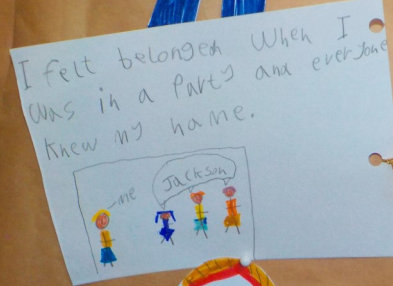 I felt belonged when I
was in a party and everyone
knew my name.
me
Jackson